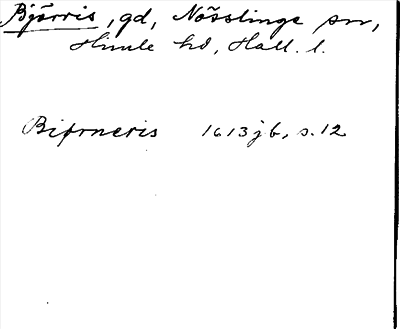 Björris, gd, Nösslinge sn,
Himle hd, Hall. l.
Biørneris 1613 jb, s. 12